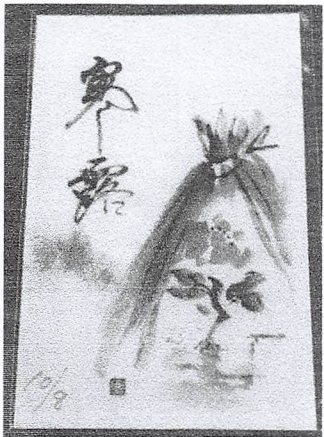 寒露
10/8